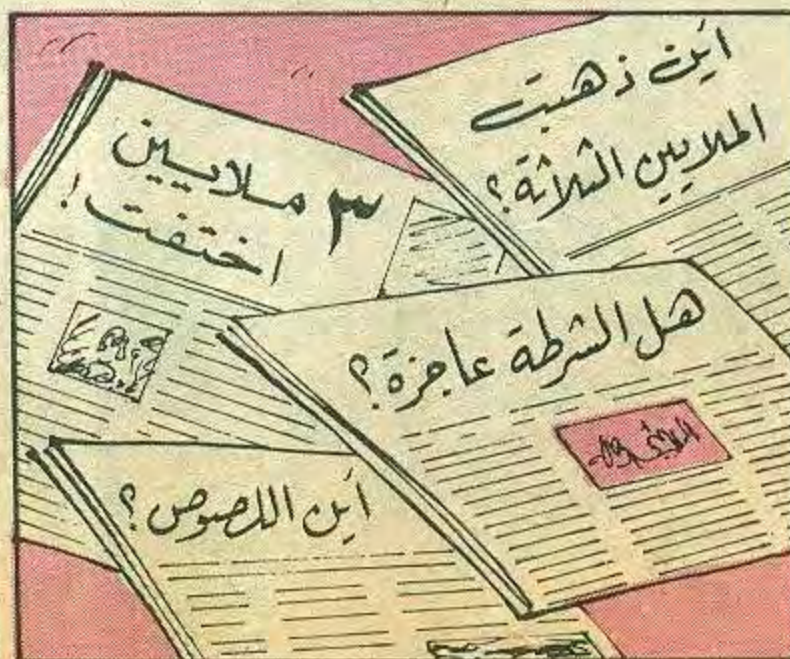 أين ذهبت
الملايين الثلاثة؟
٣ ملايين
اختفت!
هل الشرطة عاجزة؟
أين اللصوص؟